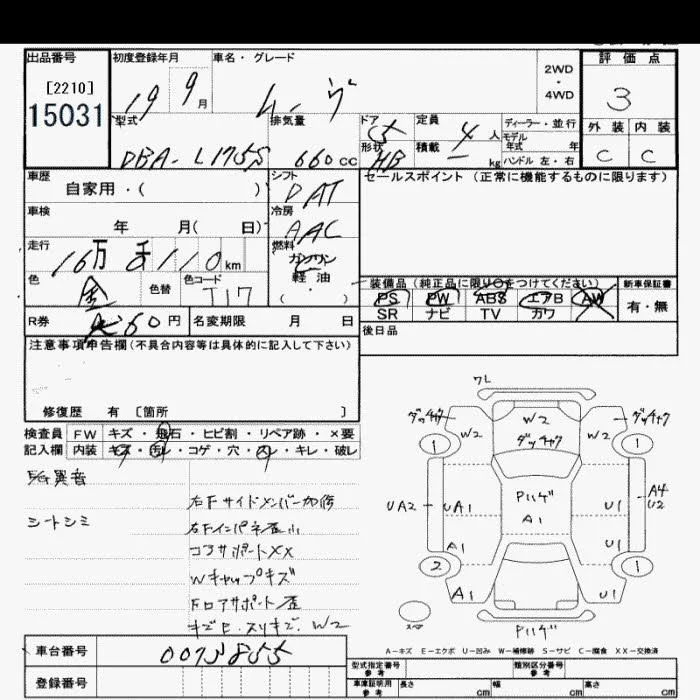 出品番号
[2210]
15031
初度登録年月
19 9月
車名・グレード
ムーヴ
2WD
・
4WD
評価点
3
外装 内装
C C
型式
DBA-L175S
排気量
660cc
ドア
形状
C5
HB
定員
4人
積載
kg
ディーラー・並行
モデル
年式 年
ハンドル 左・右
車歴
自家用・( )
シフト
DAT
セールスポイント (正常に機能するものに限ります)
車検
年 月( 日)
冷房
AAC
走行
16万 千 110km
燃料
ガソリン
軽油
・
( )
色
金
色替
色コード
T17
装備品 (純正品に限り○をつけてください)
PS PW ABS エアB AW
SR ナビ TV カワ
新車保証書
有・無
R券
60円
名変期限 月 日
後日品
注意事項申告欄 (不具合内容等は具体的に記入して下さい)
修復歴 有 〔箇所 〕
検査員
記入欄
FW キズ・飛石・ヒビ割・リペア跡・×要
内装 キズ・汚レ・コゲ・穴・スレ・キレ・破レ
異音
シートシミ
右Fサイドメンバー加修
右Fインパネ歪小
コアサポートXX
Wキャップキズ
Fロアサポート歪
キズE.スリキズ.W2
ワレ
ダッチャク
W2
W2
ダッチャク
W2
ダッチャク
1
1
UA2
UA1
Pハゲ
A1
U1
A4
U2
A1
U1
2
1
A1
U1
スペア
Pハゲ
A-キズ E-エクボ U-凹み W-補修跡 S-サビ C-腐食 XX-交換済
車台番号
0073855
登録番号
型式指定番号
参考
類別区分番号
参考
車庫証明用
参考
長さ cm
幅 cm
高さ cm